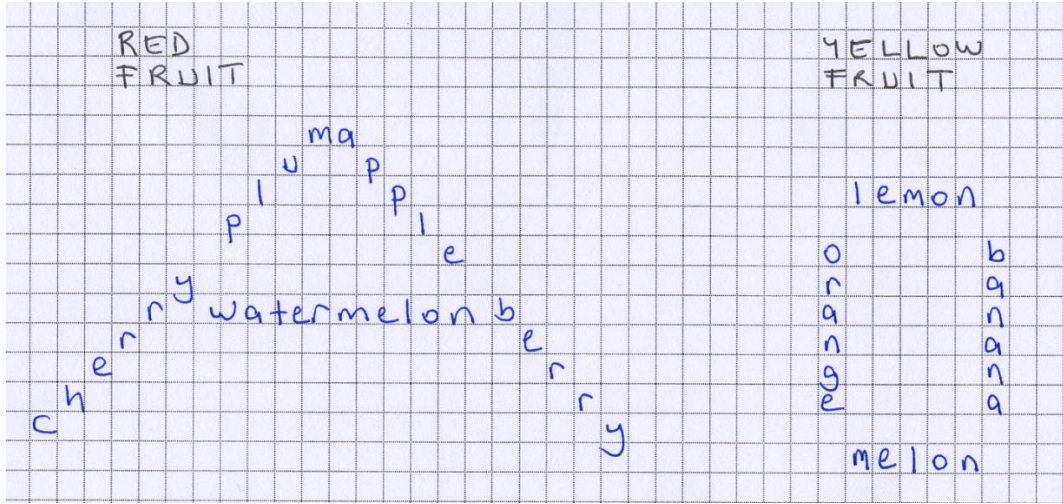 RED
FRUIT
YELLOW
FRUIT
plum
apple
cherry
watermelon
berry
lemon
orange
banana
melon